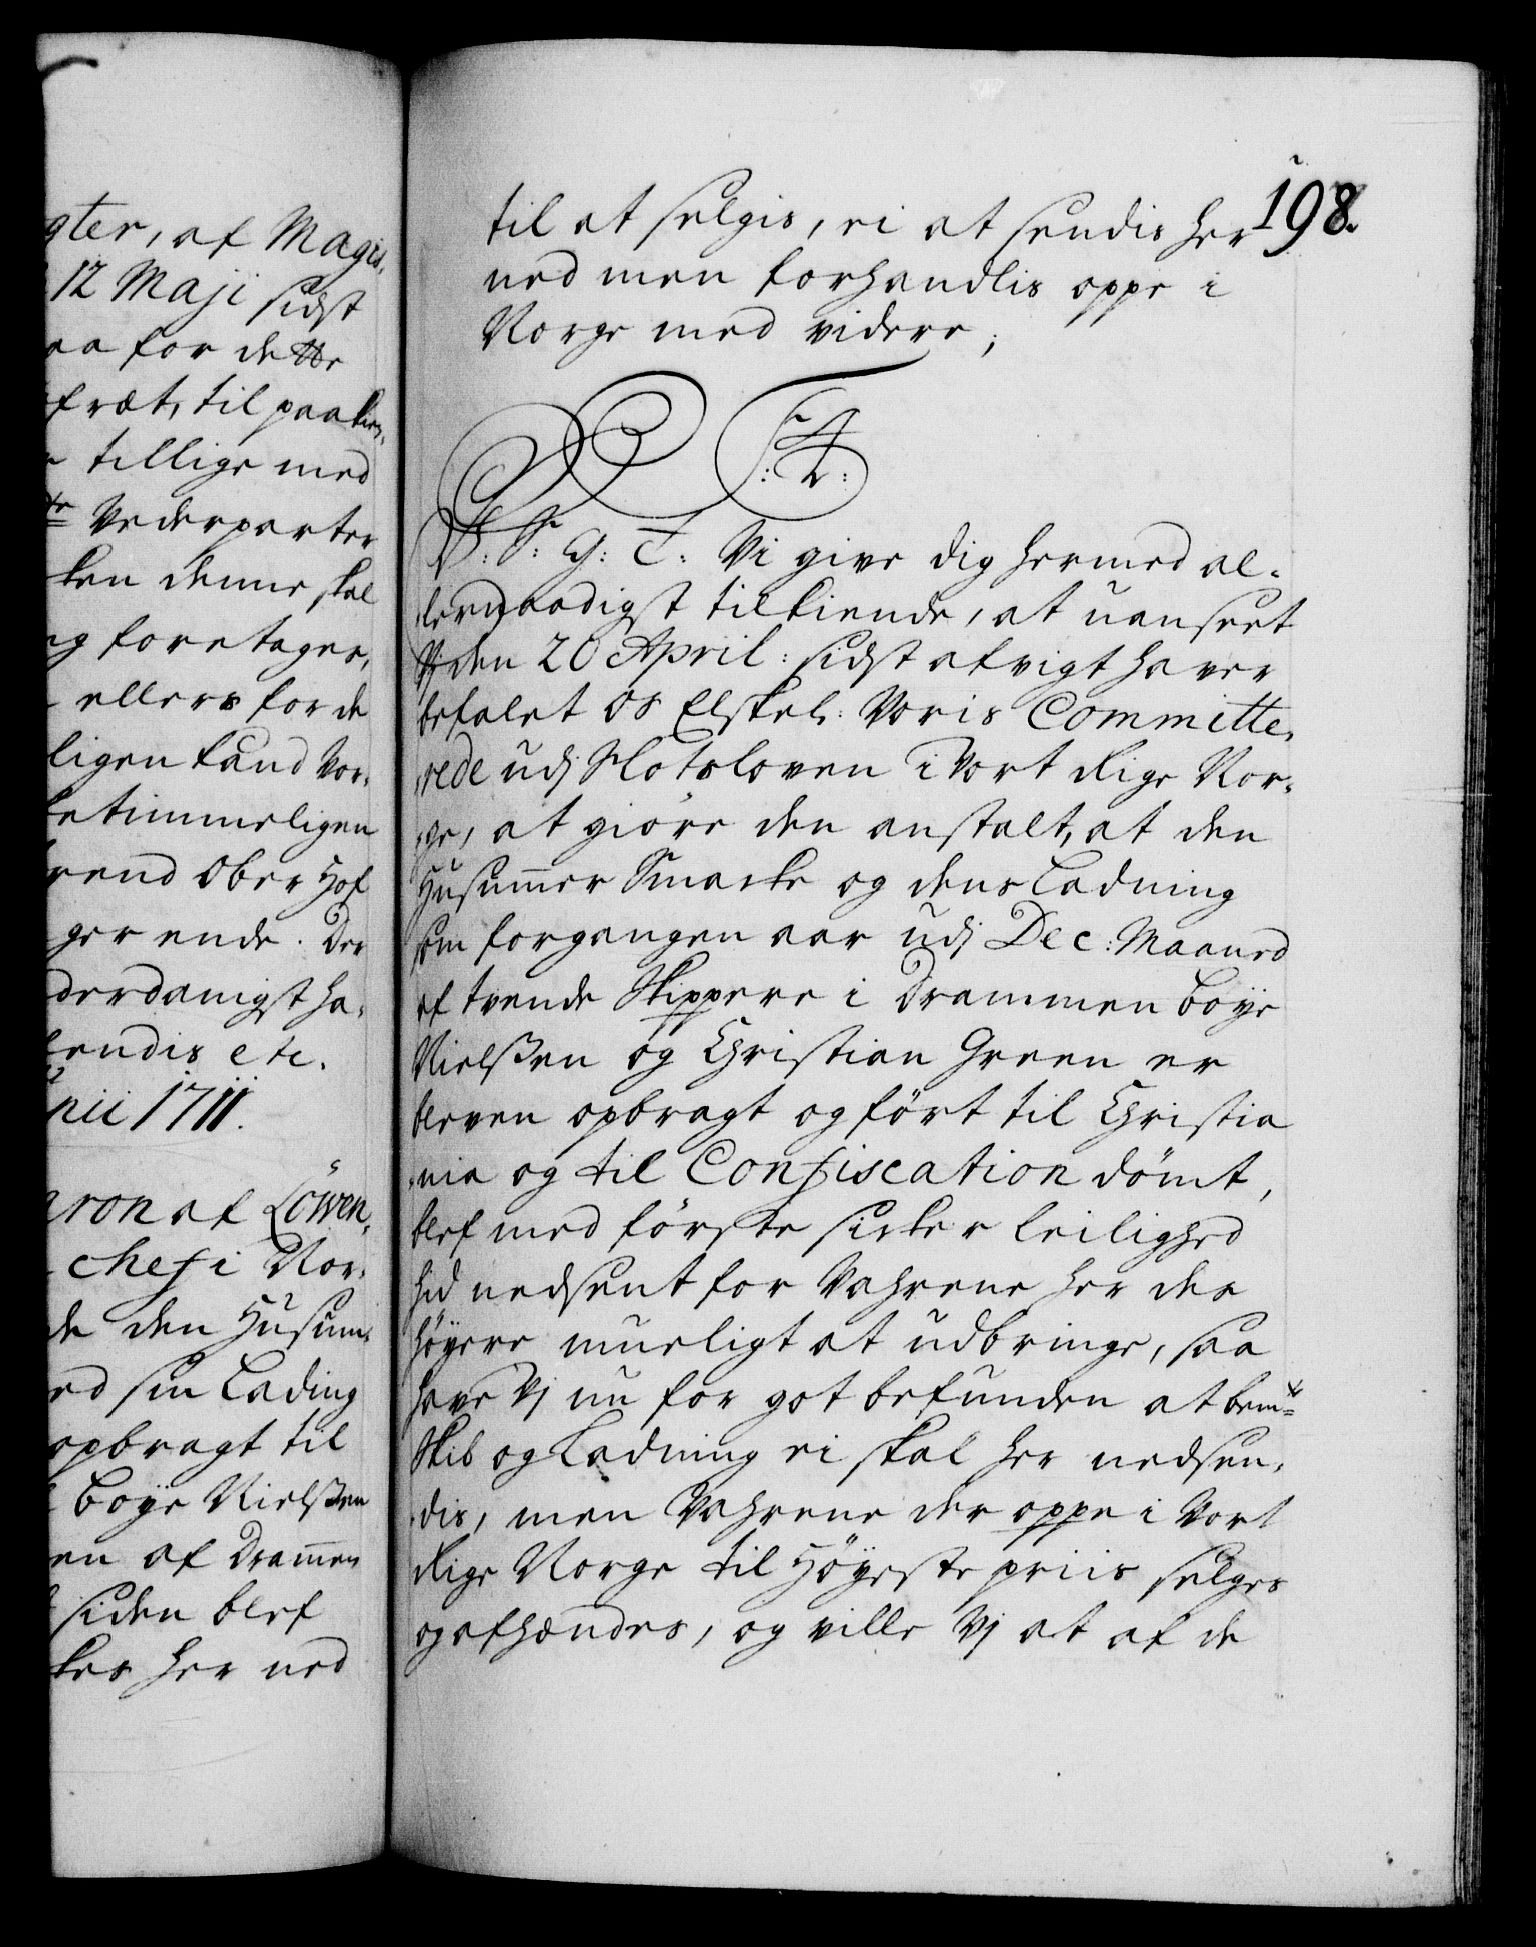 gter, af Magis,
12 Maji sidst
aa for dette
fræt, til paakien,
tillige med
Vederparter
ken denne skal
ng foretages,
ellers for de
ligen kand Vor,
betimmeligen
rend Ober Hof
ger ende. Der
derdanigst ha,
sendis etc.
nii 1711.
aron af Löwen,
chef i Nor,
de den Husum,
ed sin Lading
opbragt til
Boye Nielßen
en af Dramen
siden blef
kes her ned
198.
til at selgis, ei at sendis her
ned men forhandlis oppe i
Norge med videre;
F4
V: S: G: T: Vi give dig hermed al-
lernaadigst tilkiende, at uanseet
Vj den 20 April: sidst afvigt haver
befalet os Elskel: Voris Committe,
rede udj Slotsloven i Vort Rige Nor-
ge, at giöre den anstalt, at den
Husumer Smacke og dens Ladning
som forgangen aar udj Dec: Maaned
af tvende Skippere i Drammen Boye
Nielßen og Christian Green er
bleven opbragt og fört til Christia
nia og til Confiscation dömt,
blef med förste sicker leilighed
hid nedsent for Vahrene her des
höyere mueligt at udbringe, saa
have Vj nu for got befunden at bemte
Skib og Ladning ei skal her nedsen,
dis, men Vahrene der oppe i Vort
Rige Norge til Höyeste priis selges
og afhændes, og ville Vj at af de